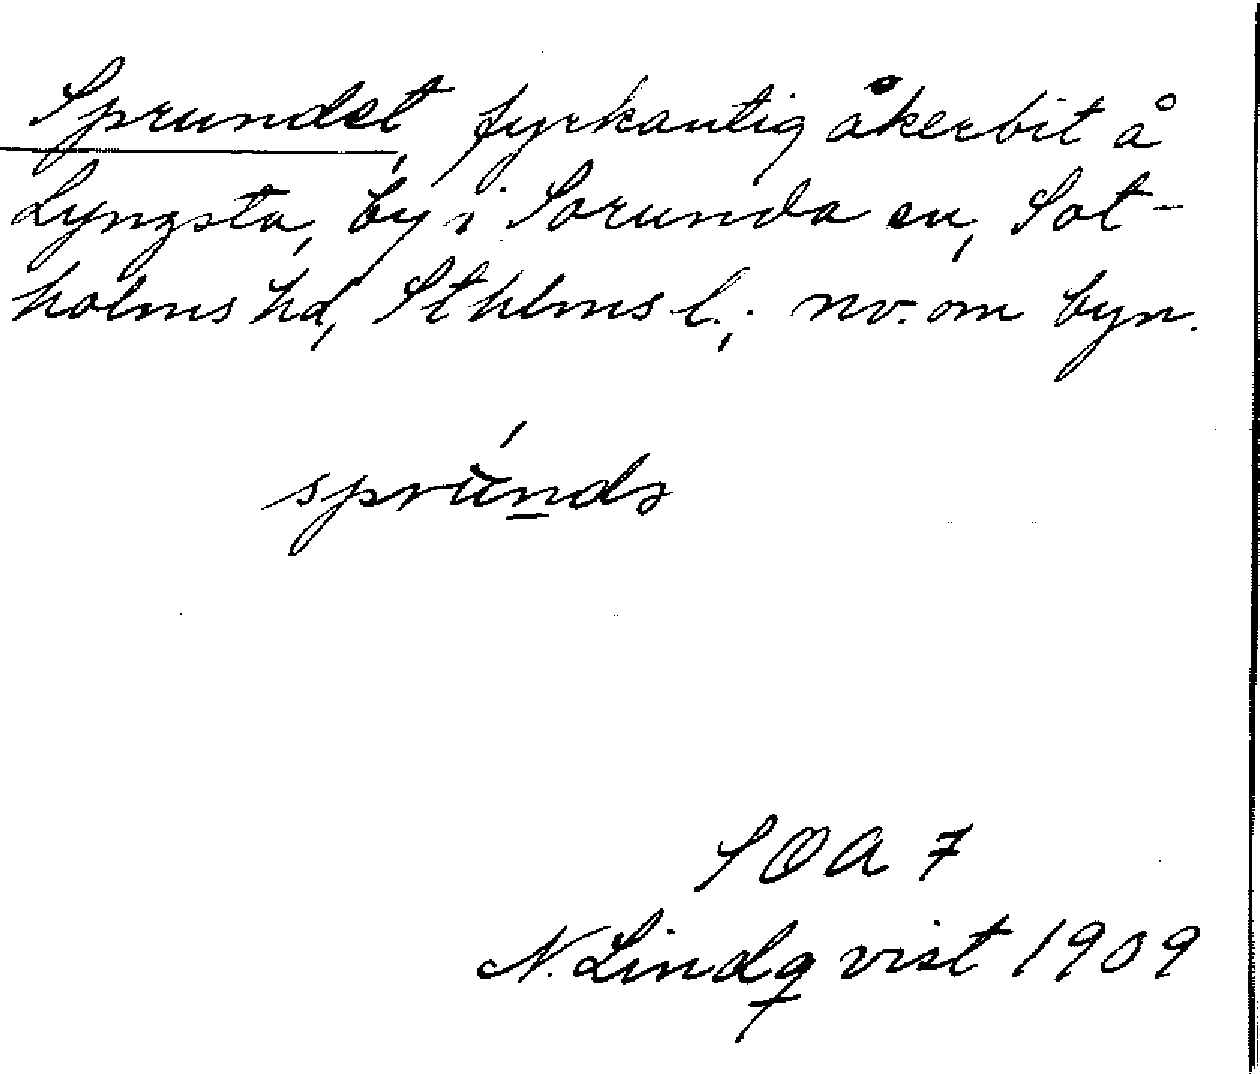 Sprundet, fyrkantig åkerbit å
Lyngsta, by i Sorunda sn, Sot-
holms hd, Sthlms l.; nv. om byn.
SOA 7
N. Lindqvist 1909